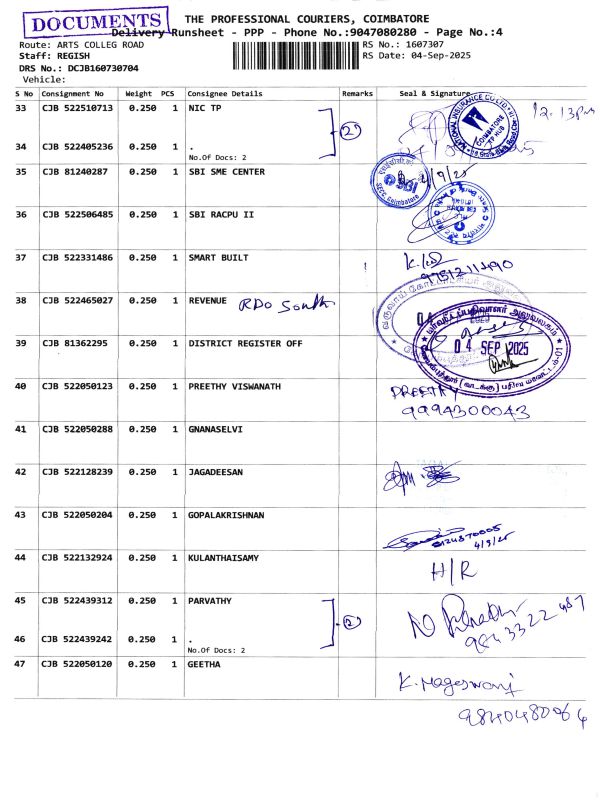 DOCUMENTS
THE PROFESSIONAL COURIERS, COIMBATORE
Delivery Runsheet - PPP - Phone No.:9047080280 - Page No.:4
Route: ARTS COLLEG ROAD
RS No.: 1607307
Staff: REGISH
RS Date: 04-Sep-2025
DRS No.: DCJB160730704
Vehicle:
S No Consignment No Weight PCS Consignee Details Remarks Seal & Signature
33 CJB 522510713 0.250 1 NIC TP 12.13pm
2
34 CJB 522405236 0.250 1 .
No.Of Docs: 2
35 CJB 81240287 0.250 1 SBI SME CENTER
SBI
Coimbatore
36 CJB 522506485 0.250 1 SBI RACPU II
37 CJB 522331486 0.250 1 SMART BUILT
38 CJB 522465027 0.250 1 REVENUE RDO South
39 CJB 81362295 0.250 1 DISTRICT REGISTER OFF
04 SEP 2025
40 CJB 522050123 0.250 1 PREETHY VISWANATH PREETHY
9994300043
41 CJB 522050288 0.250 1 GNANASELVI
42 CJB 522128239 0.250 1 JAGADEESAN
43 CJB 522050204 0.250 1 GOPALAKRISHNAN
4/9/25
44 CJB 522132924 0.250 1 KULANTHAISAMY H/R
45 CJB 522439312 0.250 1 PARVATHY
2
9843322487
46 CJB 522439242 0.250 1 .
No.Of Docs: 2
47 CJB 522050120 0.250 1 GEETHA
K. Mageswari